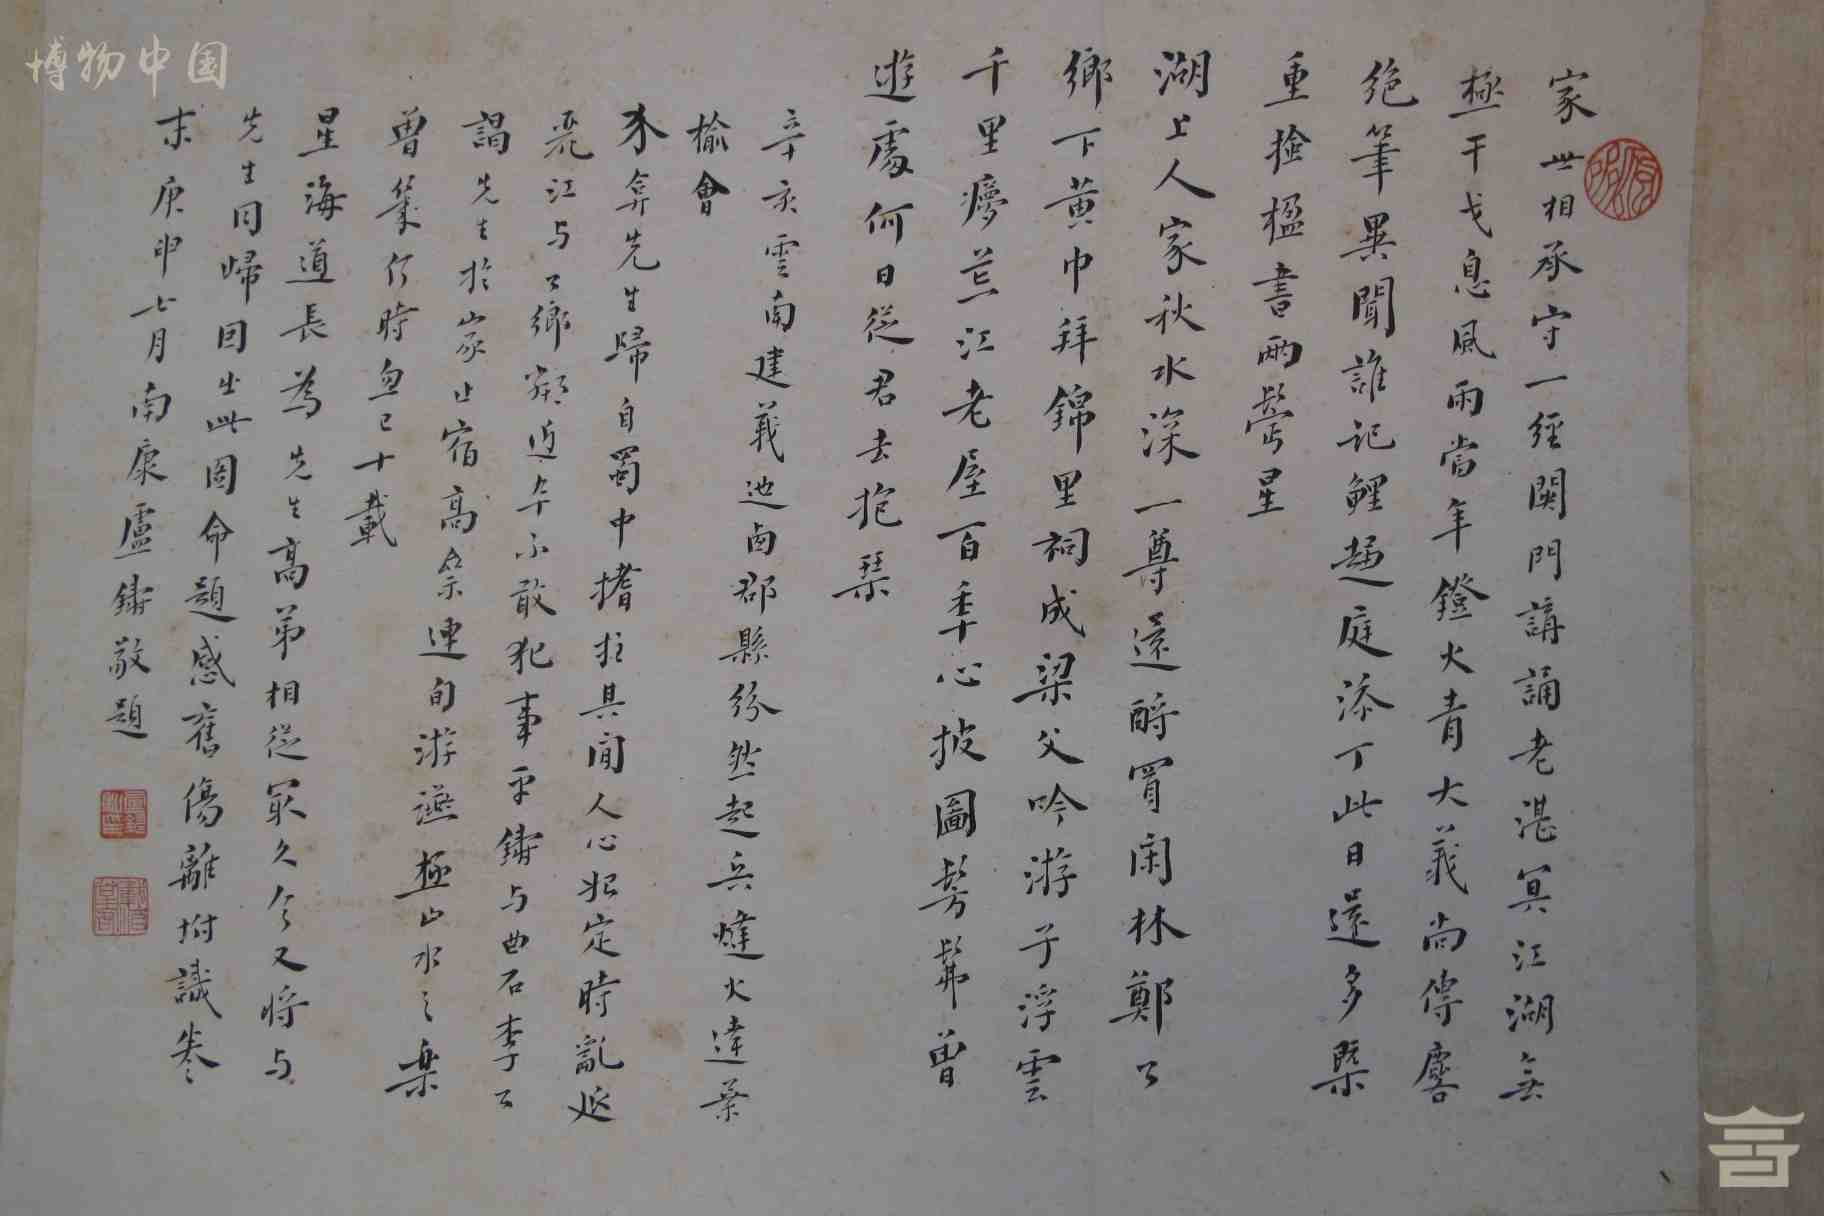 博物中国
家世相承守一經閉門講誦老湛冥江湖無
極干戈息風雨當年鐙火青大義尚傳麐
絶筆異聞誰記鯉趨庭添丁此日還多槩
重撿楹書兩鬢星
湖上人家秋水深一尊還酹買閑林鄭公
鄉下黃巾拜錦里祠成梁父吟游子浮雲
千里癭荒江老屋百年心披圖髣髴曾
遊處何日從君去抱琹
辛亥雲南建義迆西郡縣紛然起兵燧火達葉
榆會
先生歸自蜀中搘拄其間人心始定時亂延
江与公鄉鄰近卒不敢犯事平鑄与曲石李公
謁先生於山家止宿高 連旬游讌極山水之樂
曾幾何時忽已十載
星海道長為先生高弟相從最久今又將与
先生同歸因出此圖命題感舊傷離坿識卷
末庚申七月南康盧鑄敬題